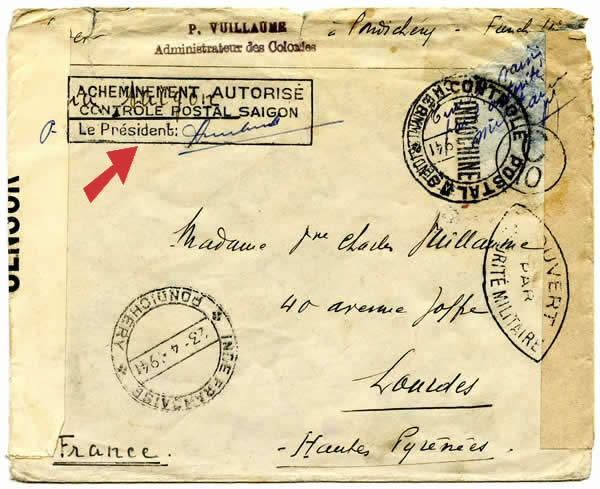 P. VUILLAUME
Administrateur des Colonies
à Pondichéry - French
ACHEMINEMENT AUTORISÉ
via Saigon
CONTROLE POSTAL SAIGON
Le Président:
CONTROLE POSTAL
INDOCHINE
1941
CENSOR
OUVERT
PAR
AUTORITÉ MILITAIRE
Madame Charles Vuillaume
40 avenue Joffre
Lourdes
- Hautes Pyrénées -
INDE FRANÇAISE
23-4-1941
PONDICHERY
France.